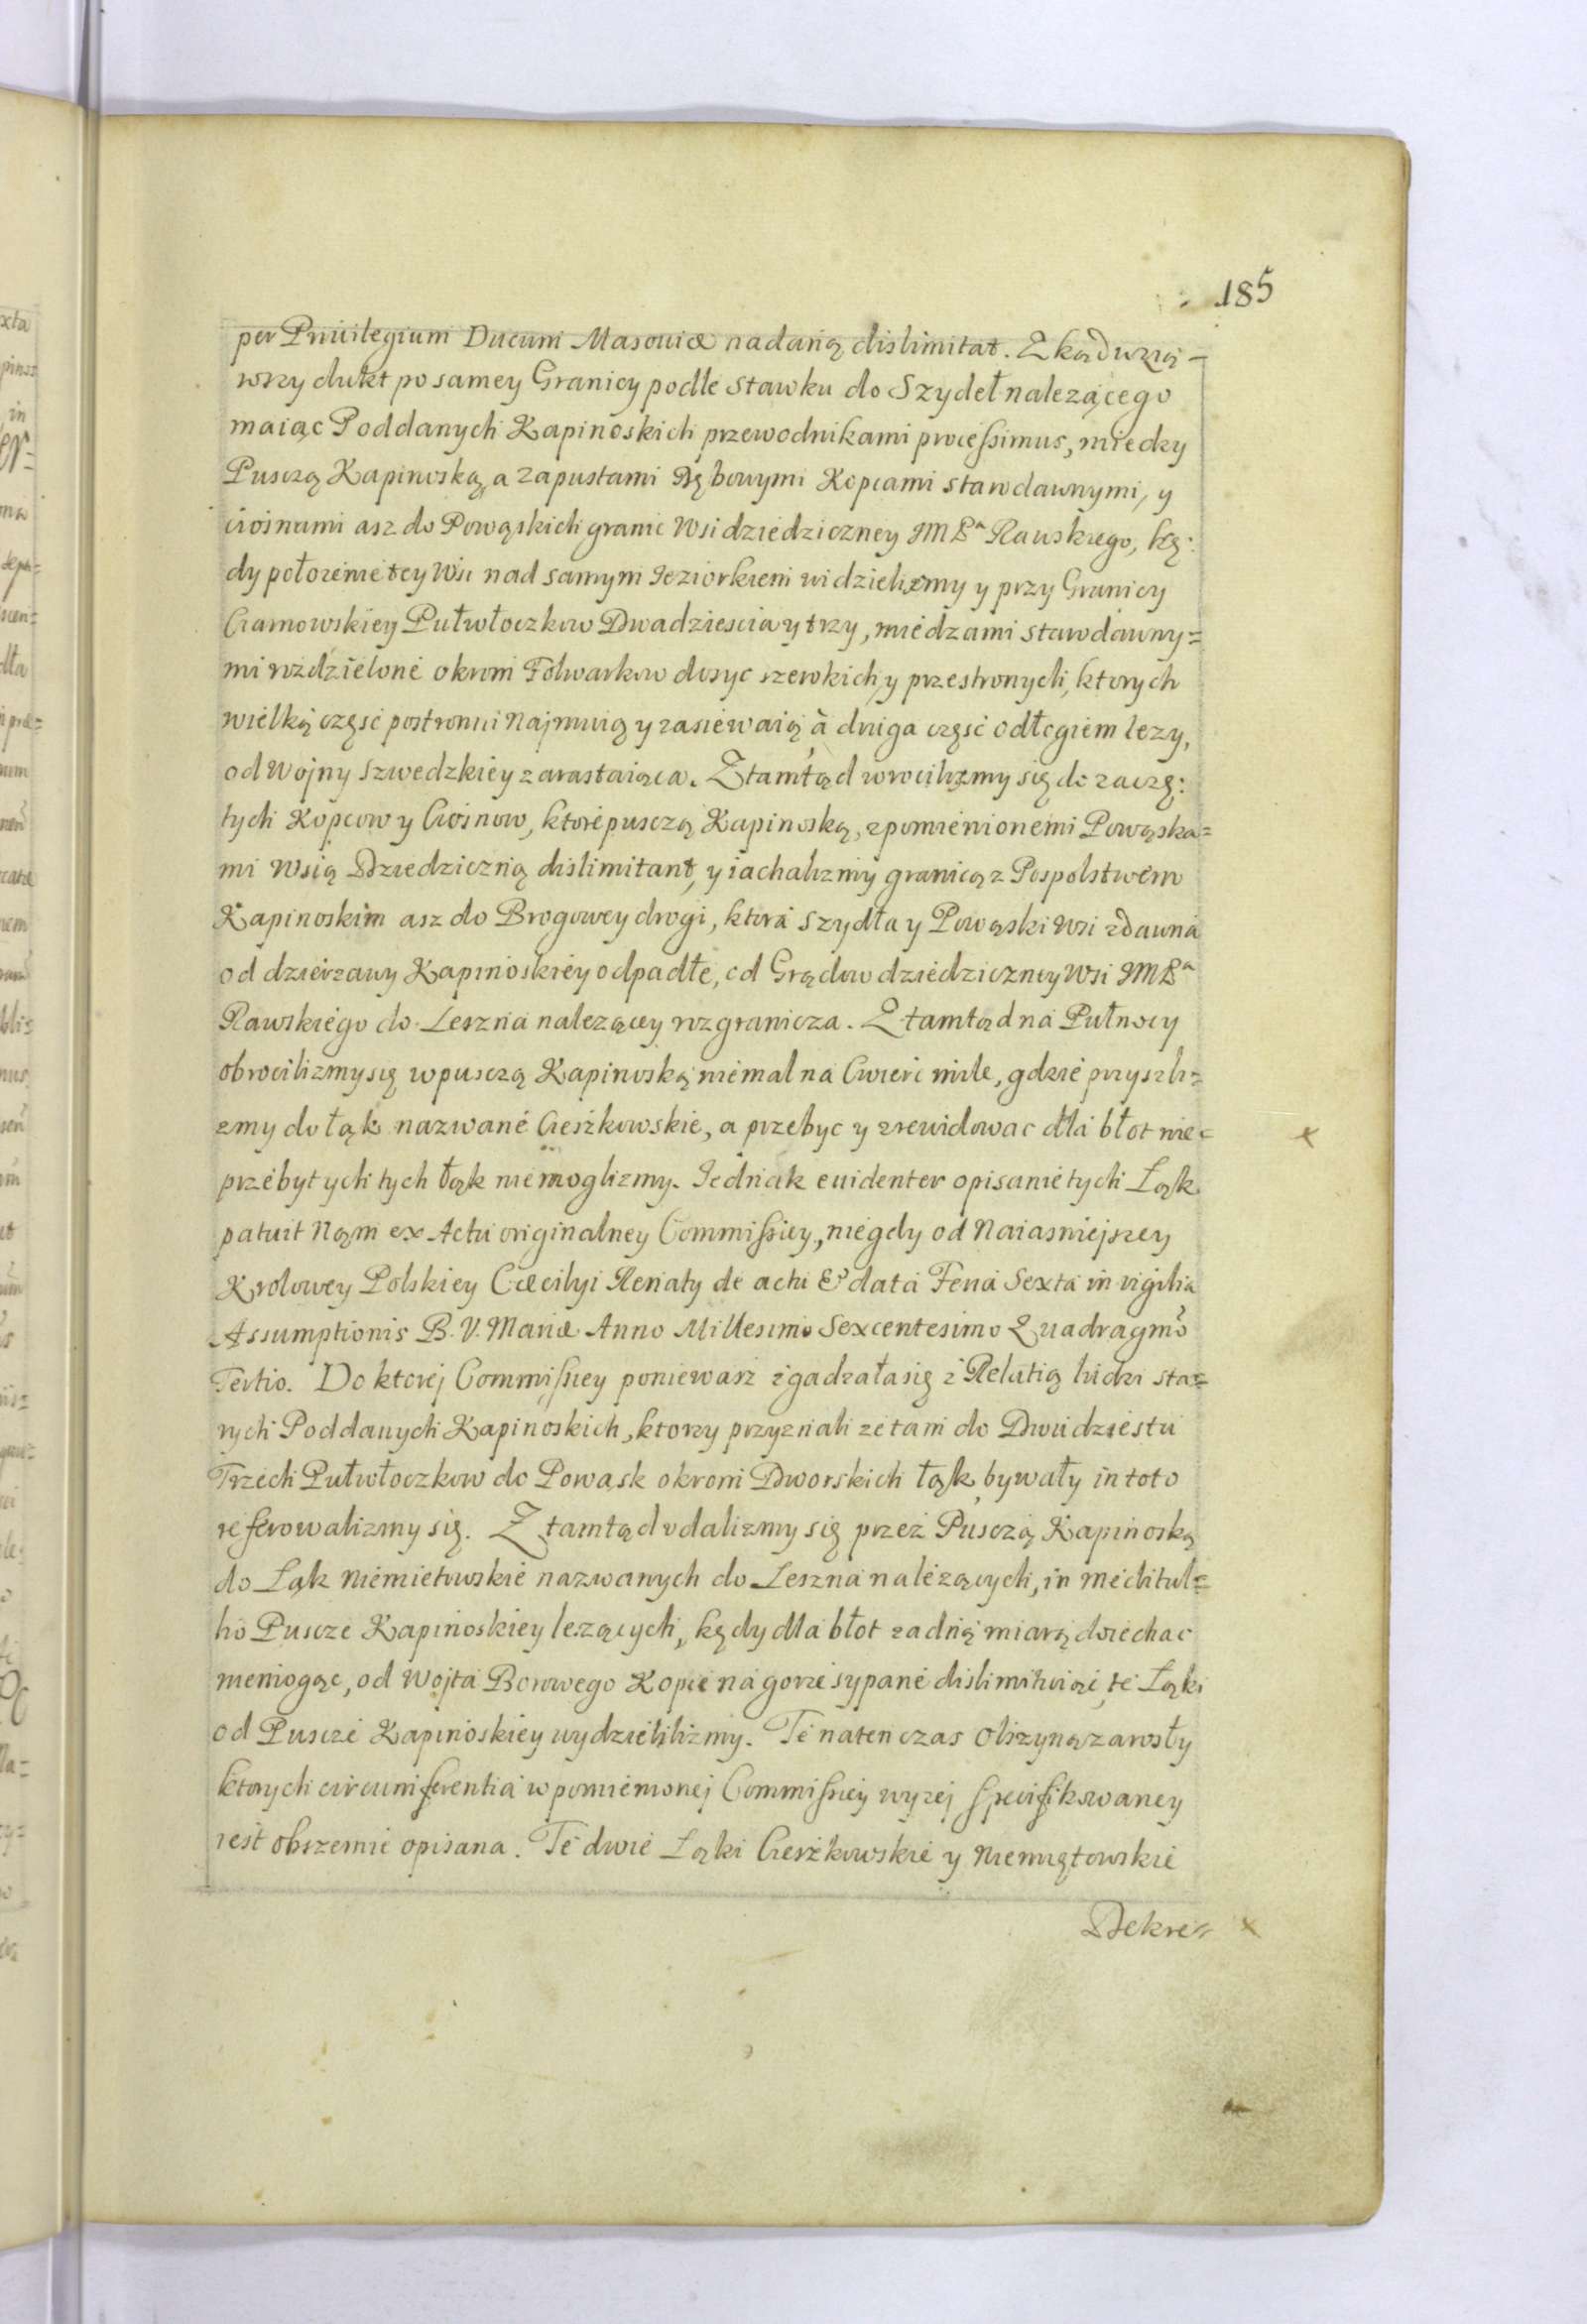 185
per Priuilegium Ducum Masouiæ nadaną dislimitat. Zkąd wzią-
wszy dukt po samey Granicy podle stawku do Szydeł nalezącego
maiąc Poddanych Kapinoskich przewodnikami processimus, miedzy
Pusczą Kapinoską, a zapustami Dębowymi Kopcami starodawnymi, y
ciosnami asz do Powąskich granic Wsi dziedziczney JMPa Rawskiego, kę:
dy położenie tey Wsi nad samym Ieziorkiem widzielizmy y przy Granicy
Czarnowskiey Pułwłoczkow Dwadziescia y trzy, miedzami starodawny=
mi rozdzielone okrom Folwarkow dosyc szerokich, y przestronych, ktorych
wielką część postronni Najmuią y zasiewaią, à druga część odłogiem lezy,
od Wojny Szwedzkiey zarastaiąca. Ztamtąd wrocilizmy się do zaczę:
tych Kopcow y Ciosnow, ktore pusczą Kapinoską, z pomienionemi Powąska=
mi Wsią Dziedziczną dislimitant, y iachalizmy granicą z Pospolstwem
Kapinoskim asz do Brogowey drogi, ktora Szydła y Powąski Wsi zdawna
od dzierzawy Kapinoskiey odpadłe, od Grądow dziedziczney Wsi JMPa
Rawskiego do Leszna nalezącey rozgranicza. Ztamtąd na Pułnocy
obrocilizmy się w pusczą Kapinoską niemal na Cwierć mile, gdzie przyszli=
zmy do łąk nazwane Cieszkowskie, a przebyc y zrewidowac dla błot nie=
przebytych tych łąk niemoglizmy. Iednak euidenter opisanie tych Łąk
patuit Nam ex Actu originalney Commissiey, niegdy od Naiasniejszey
Krolowey Polskiey Cæcilyi Renaty de actu & data Feria Sexta in vigilia
Assumptionis B. V. Mariæ Anno Millesimo Sexcentesimo Quadragmo
Tertio. Do ktorej Commissiey poniewasz zgadzała się z Relatią ludzi sta=
rych Poddanych Kapinoskich, ktorzy przyznali ze tam do Dwudziestu
Trzech Pułwłoczkow do Powąsk okrom Dworskich łąk, bywały in toto
referowalizmy się. Ztamtąd vdalizmy się przez Pusczą Kapinoską
do Łąk Niemietowskie nazwanych do Leszna nalezących, in meditul=
lio Puscze Kapinoskiey lezących, kędy dla błot zadną miarą doiechac
niemogąc, od Wojta Borowego Kopce na gorze sypane dislimituiąc, te Łąki
od Puscze Kapinoskiey wydzielilizmy. Te naten czas Olszyną zarosły
ktorych circumferentia w pomienionej Commissiey wyzej specifikowaney
iest obszernie opisana. Te dwie Łąki Cieszkowskie y Niemiętowskie
Dekre=